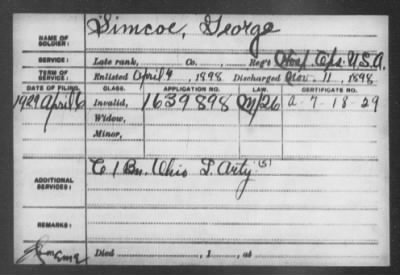 NAME OF SOLDIER: Simcoe, George
SERVICE: Late rank, Co. Reg't Hosp Cps. U.S.A.
TERM OF SERVICE: Enlisted April 4, 1898 Discharged Nov. 11, 1898
DATE OF FILING. CLASS. APPLICATION NO. LAW. CERTIFICATE NO.
1929 April 6 Invalid, 1639898 M/26 A-7-18-29
Widow,
Minor,
ADDITIONAL SERVICES: C 1 Bn. Ohio L. Arty (S)
REMARKS:
Died , 1 , at